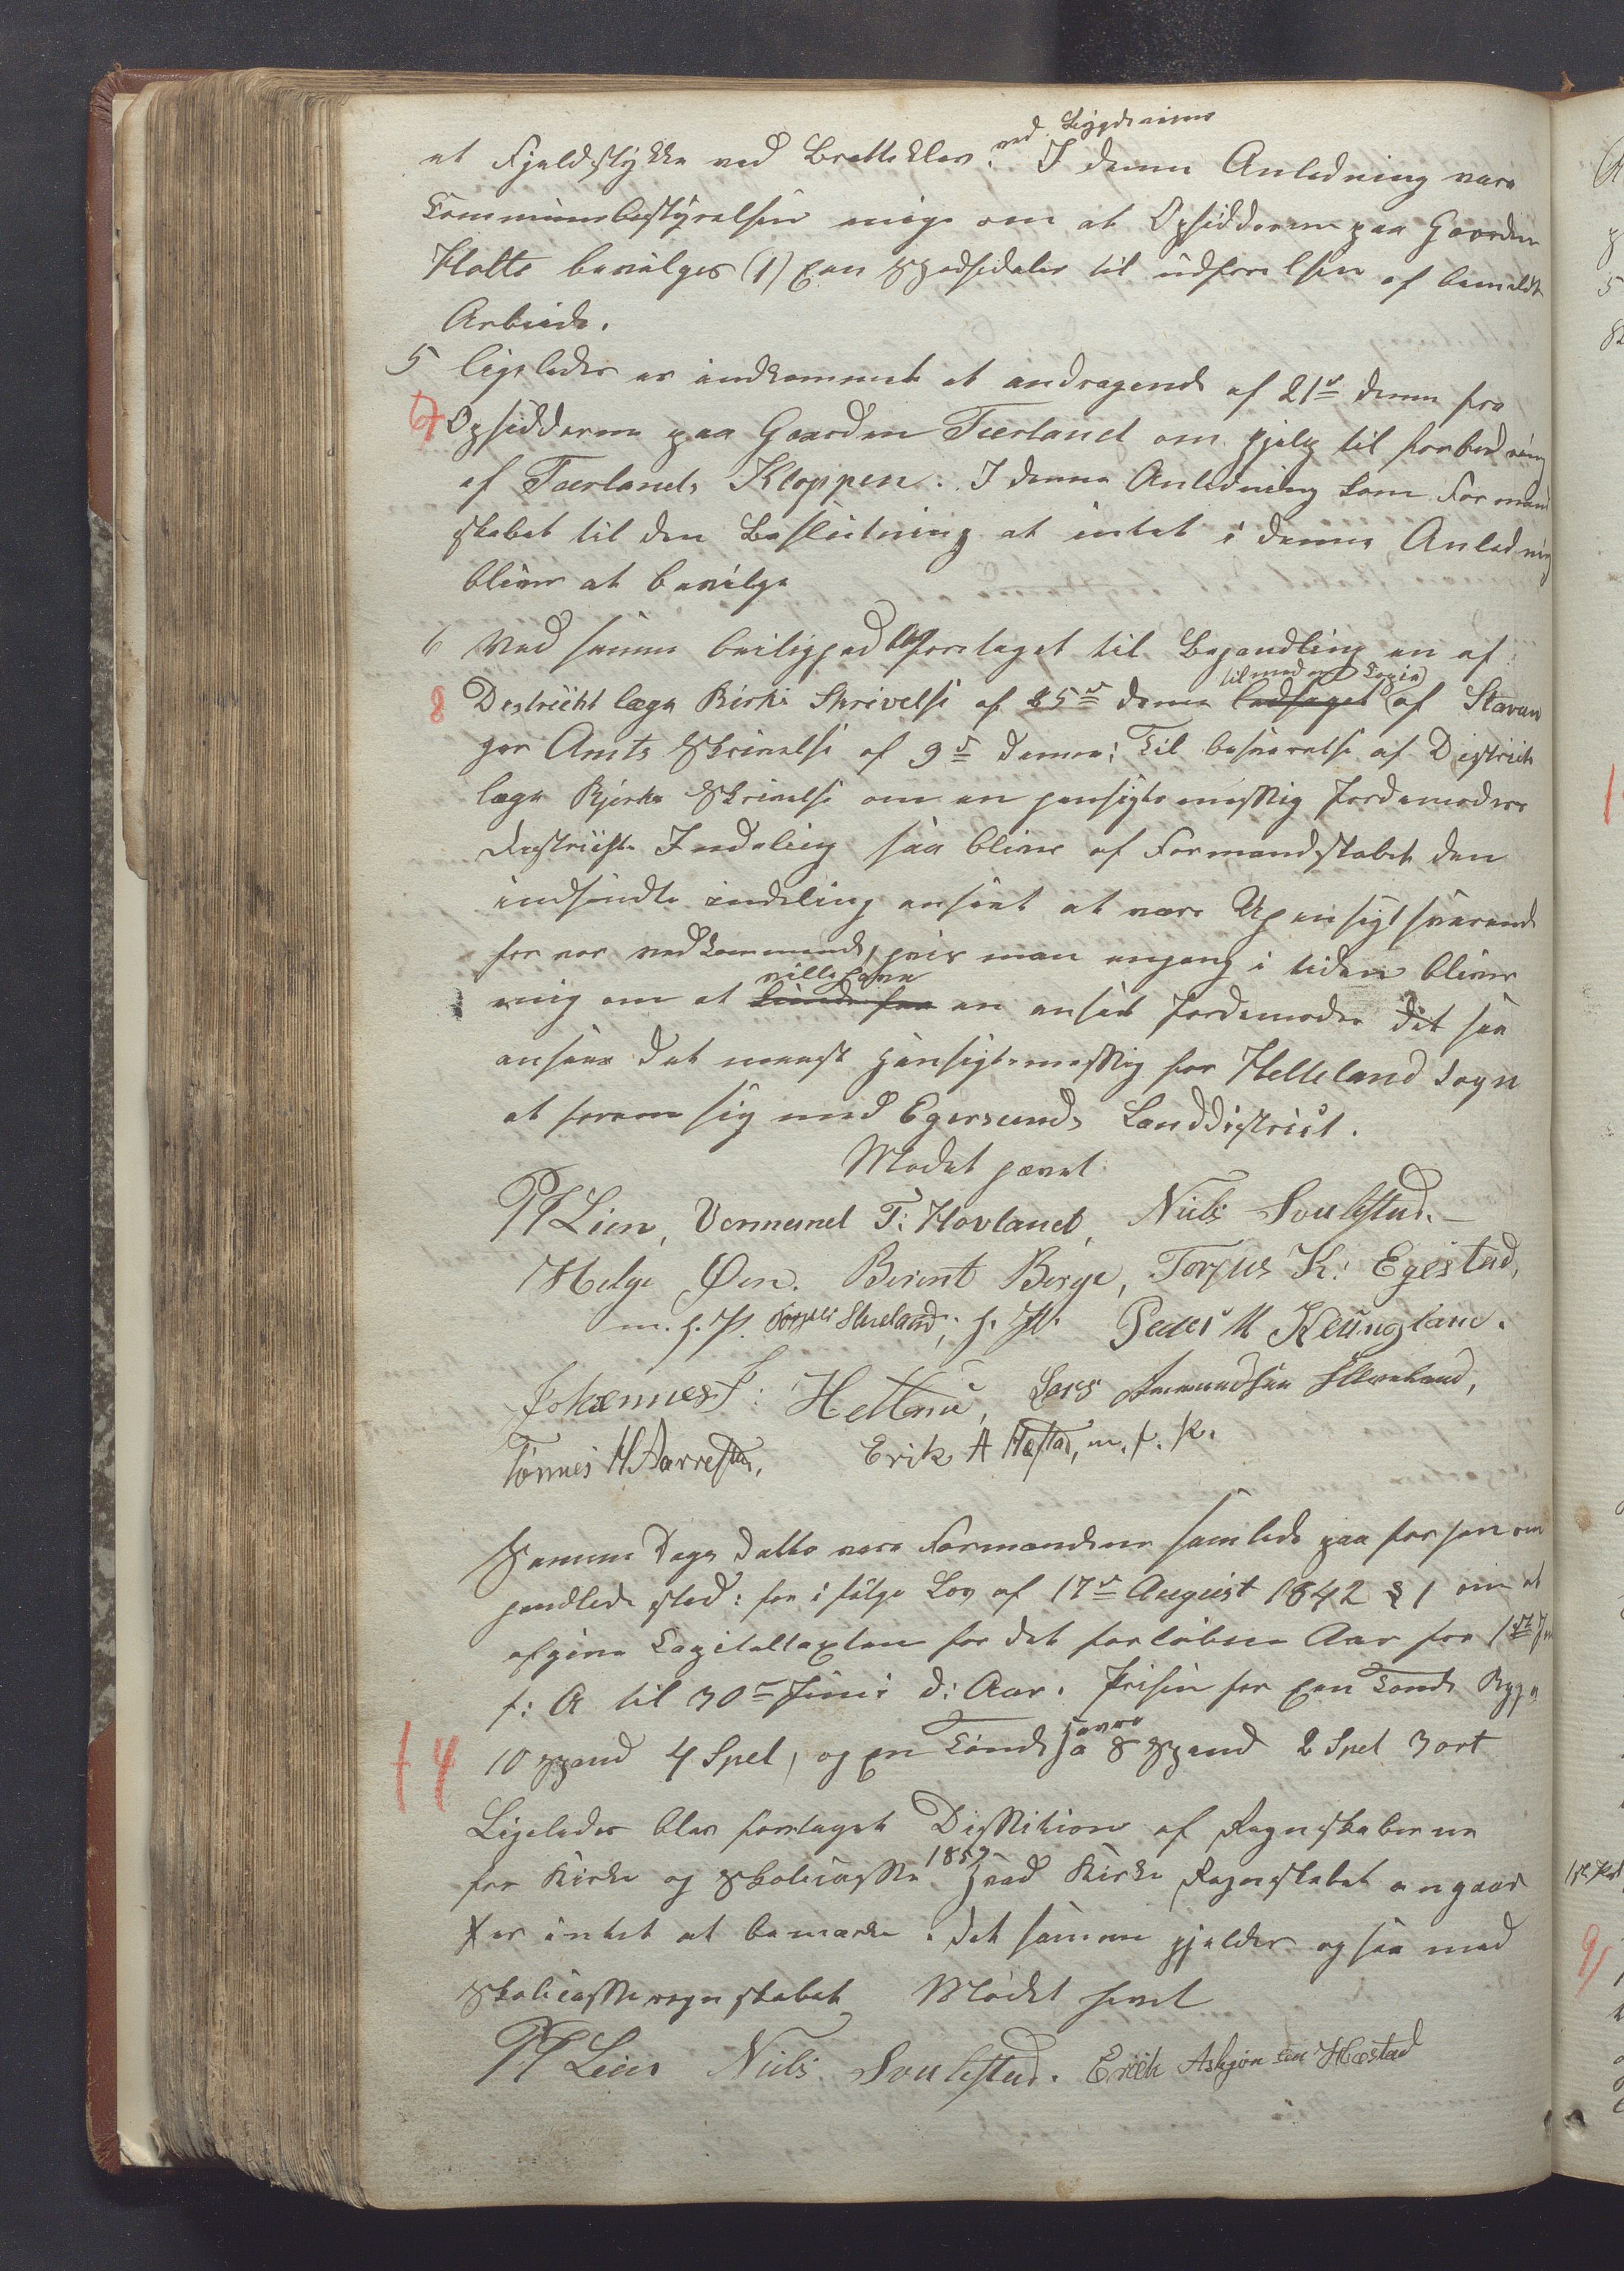 ved Bygdeveien
et Fjeldstykke ved Bratteklev. I denne Anledning vare
Communebestyrelsen enige om at Opsidderne paa Gaarden
Hatte bevilges (1) een Spesidaler til udførelsen af bemeldt
Arbeide.
5 ligeledes er indkommet et andragende af 21de denne fra
7 Opsidderne paa Gaarden Tærland om hjelp til forbedring
af Tærlands Kloppen. I denne Anledning kom Formand
skabet til den Beslutning at intet i denne Anledning
bliver at bevilge
6 Ved samme leilighed blev foretaget til Behandling en af
8 Destrickt læge Birks Skrivelse af 25de denne ledsaget tilmed en Copie af Stavan
ger Amts Skrivelse af 9de denne: Til besvarelse af District
læge Bjerks Skrivelse om en hensigtsmæssig Jordemoder
Destrickts Indeling saa bliver af Formandskabet den
indsendte indeling anseet at være Uhensigtsvarende
for vor vedkommende, hvis man engang i tiden bliver
enig om at kunde faa ville have en ansat Jordemoder dit saa
ansees det meest hensigtsmæssig for Helleland Sogn
at forene sig med Egersunds Landdistrict.
Mødet hævet
P Lien, Vermund T: Hovland, Niels Soulestad.
Helge Øen. Berent Berge, Torjus K: Egestad,
m. f. P. Skaaland, h. P. Peder M Keungland.
Johannes J: Hetland, Lars Amundsen Skaaland,
Tønnes H Aarrestad, Erik A Hæstad, m. f. P.
Samme Dags Datto vare Formændene samlede paa for hen om
handlede sted: for i følge Lov af 17de August 1842 § 1 om at
afgive Capitelstaxten for det forløbne Aar fra 1ste Juli
f: A til 30te Juni d: Aar. Prisen for een Tønde Byg a
10 Spand 4 Spd, og en Tønde Havre a 8 Spand 2 Spd 3 ort
14
Ligeledes blev foretaget Dessition af Regnskaberne
for Kirke og Skolecasse 1859 Hvad Kirke Regnskabet angaar
er intet at bemærke. det samme gjelder og saa med
Skolecasseregnskabet Mødet hevet
P Lien Niels Soulestad. Erik Asbjørnsen Hæstad